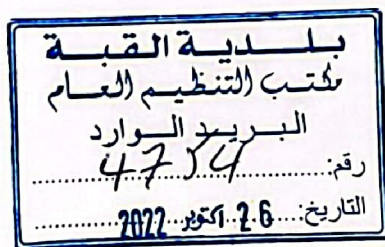 بلدية القبة
مكتب التنظيم العام
البريد الوارد
رقم: 4754
التاريخ: 26 اكتوبر 2022